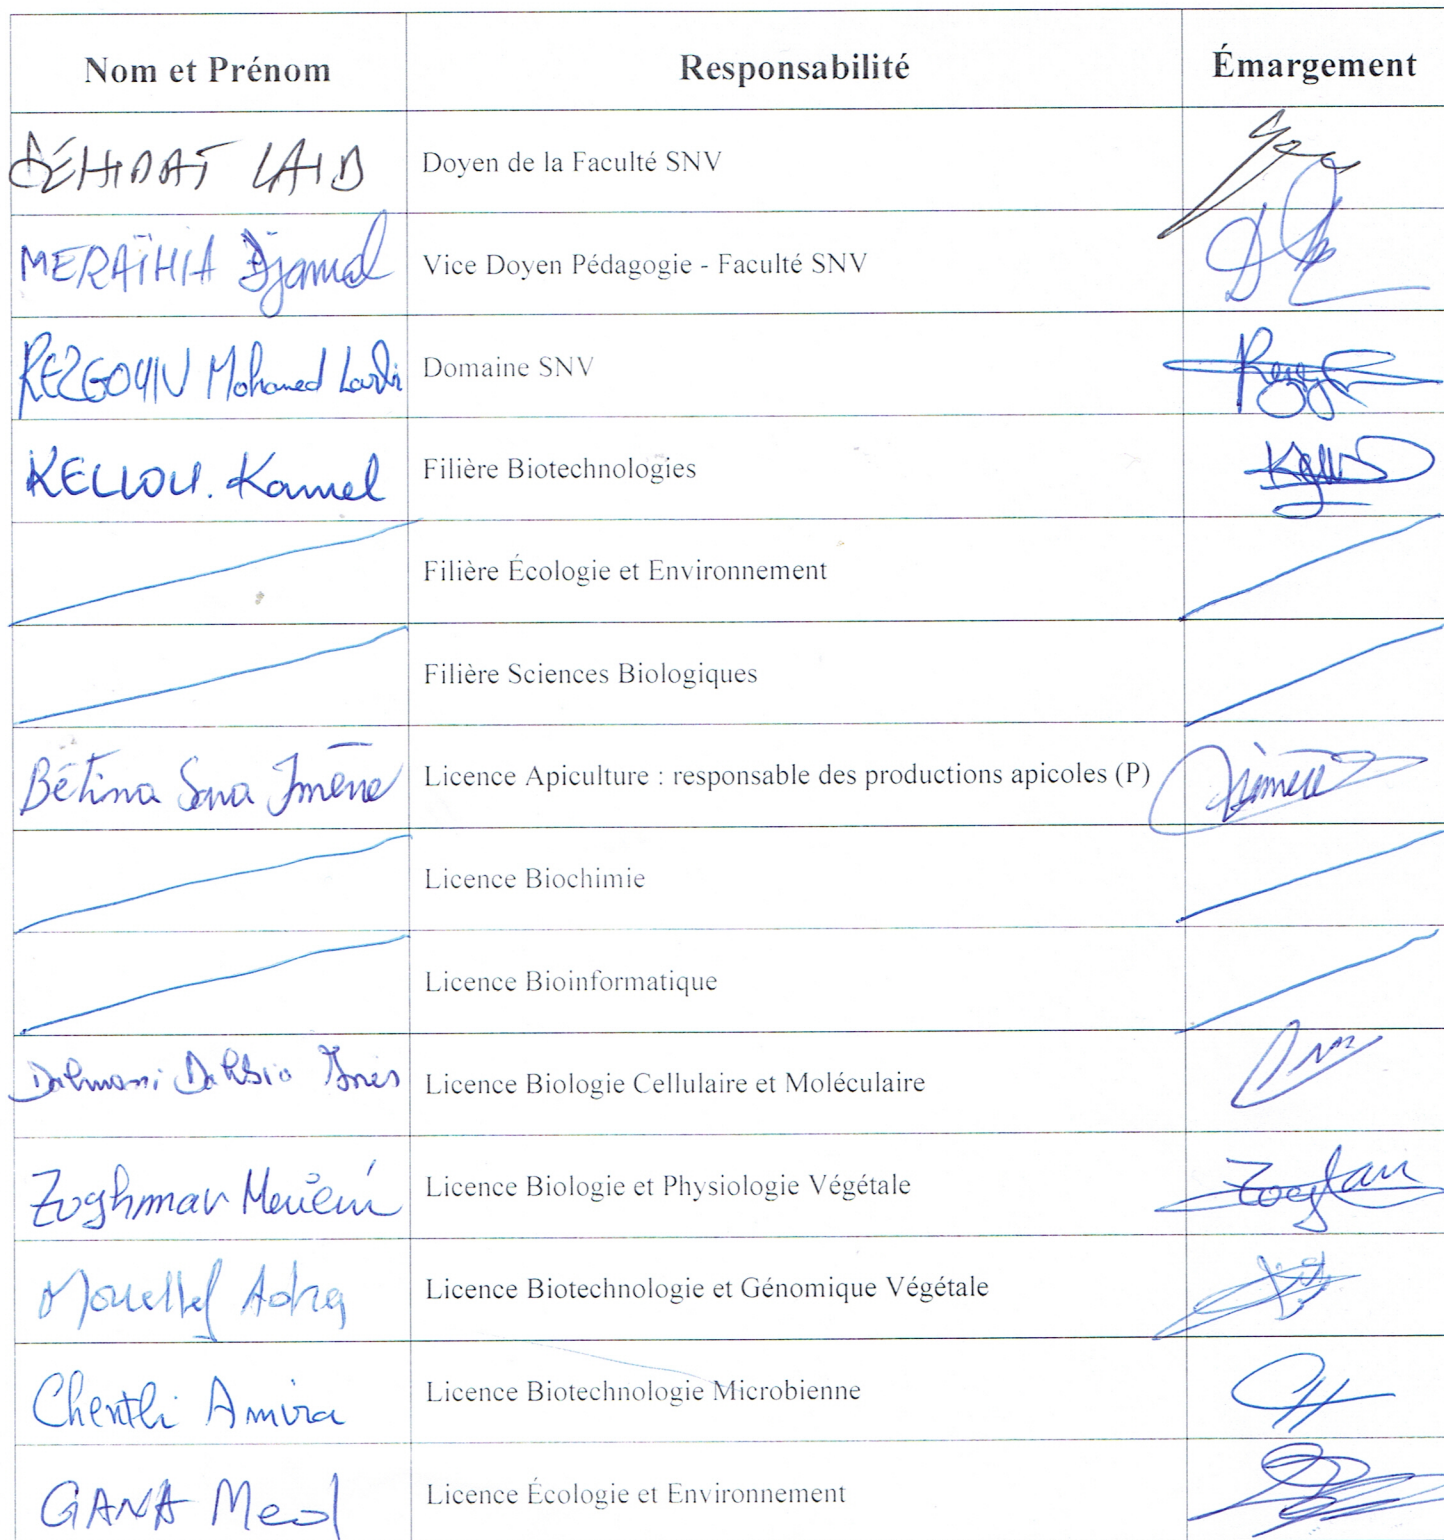 Nom et Prénom Responsabilité Émargement
DÉHIDAT LAID Doyen de la Faculté SNV
MERAÏHIA Djamel Vice Doyen Pédagogie - Faculté SNV
Mohamed Domaine SNV
KELLOU. Kamel Filière Biotechnologies
Filière Écologie et Environnement
Filière Sciences Biologiques
Bétina Sara Imène Licence Apiculture : responsable des productions apicoles (P)
Licence Biochimie
Licence Bioinformatique
Dahmani Dahbia Ines Licence Biologie Cellulaire et Moléculaire
Zoghmar Meriem Licence Biologie et Physiologie Végétale
Mouellef Adra Licence Biotechnologie et Génomique Végétale
Chentli Amira Licence Biotechnologie Microbienne
GANA Med Licence Écologie et Environnement